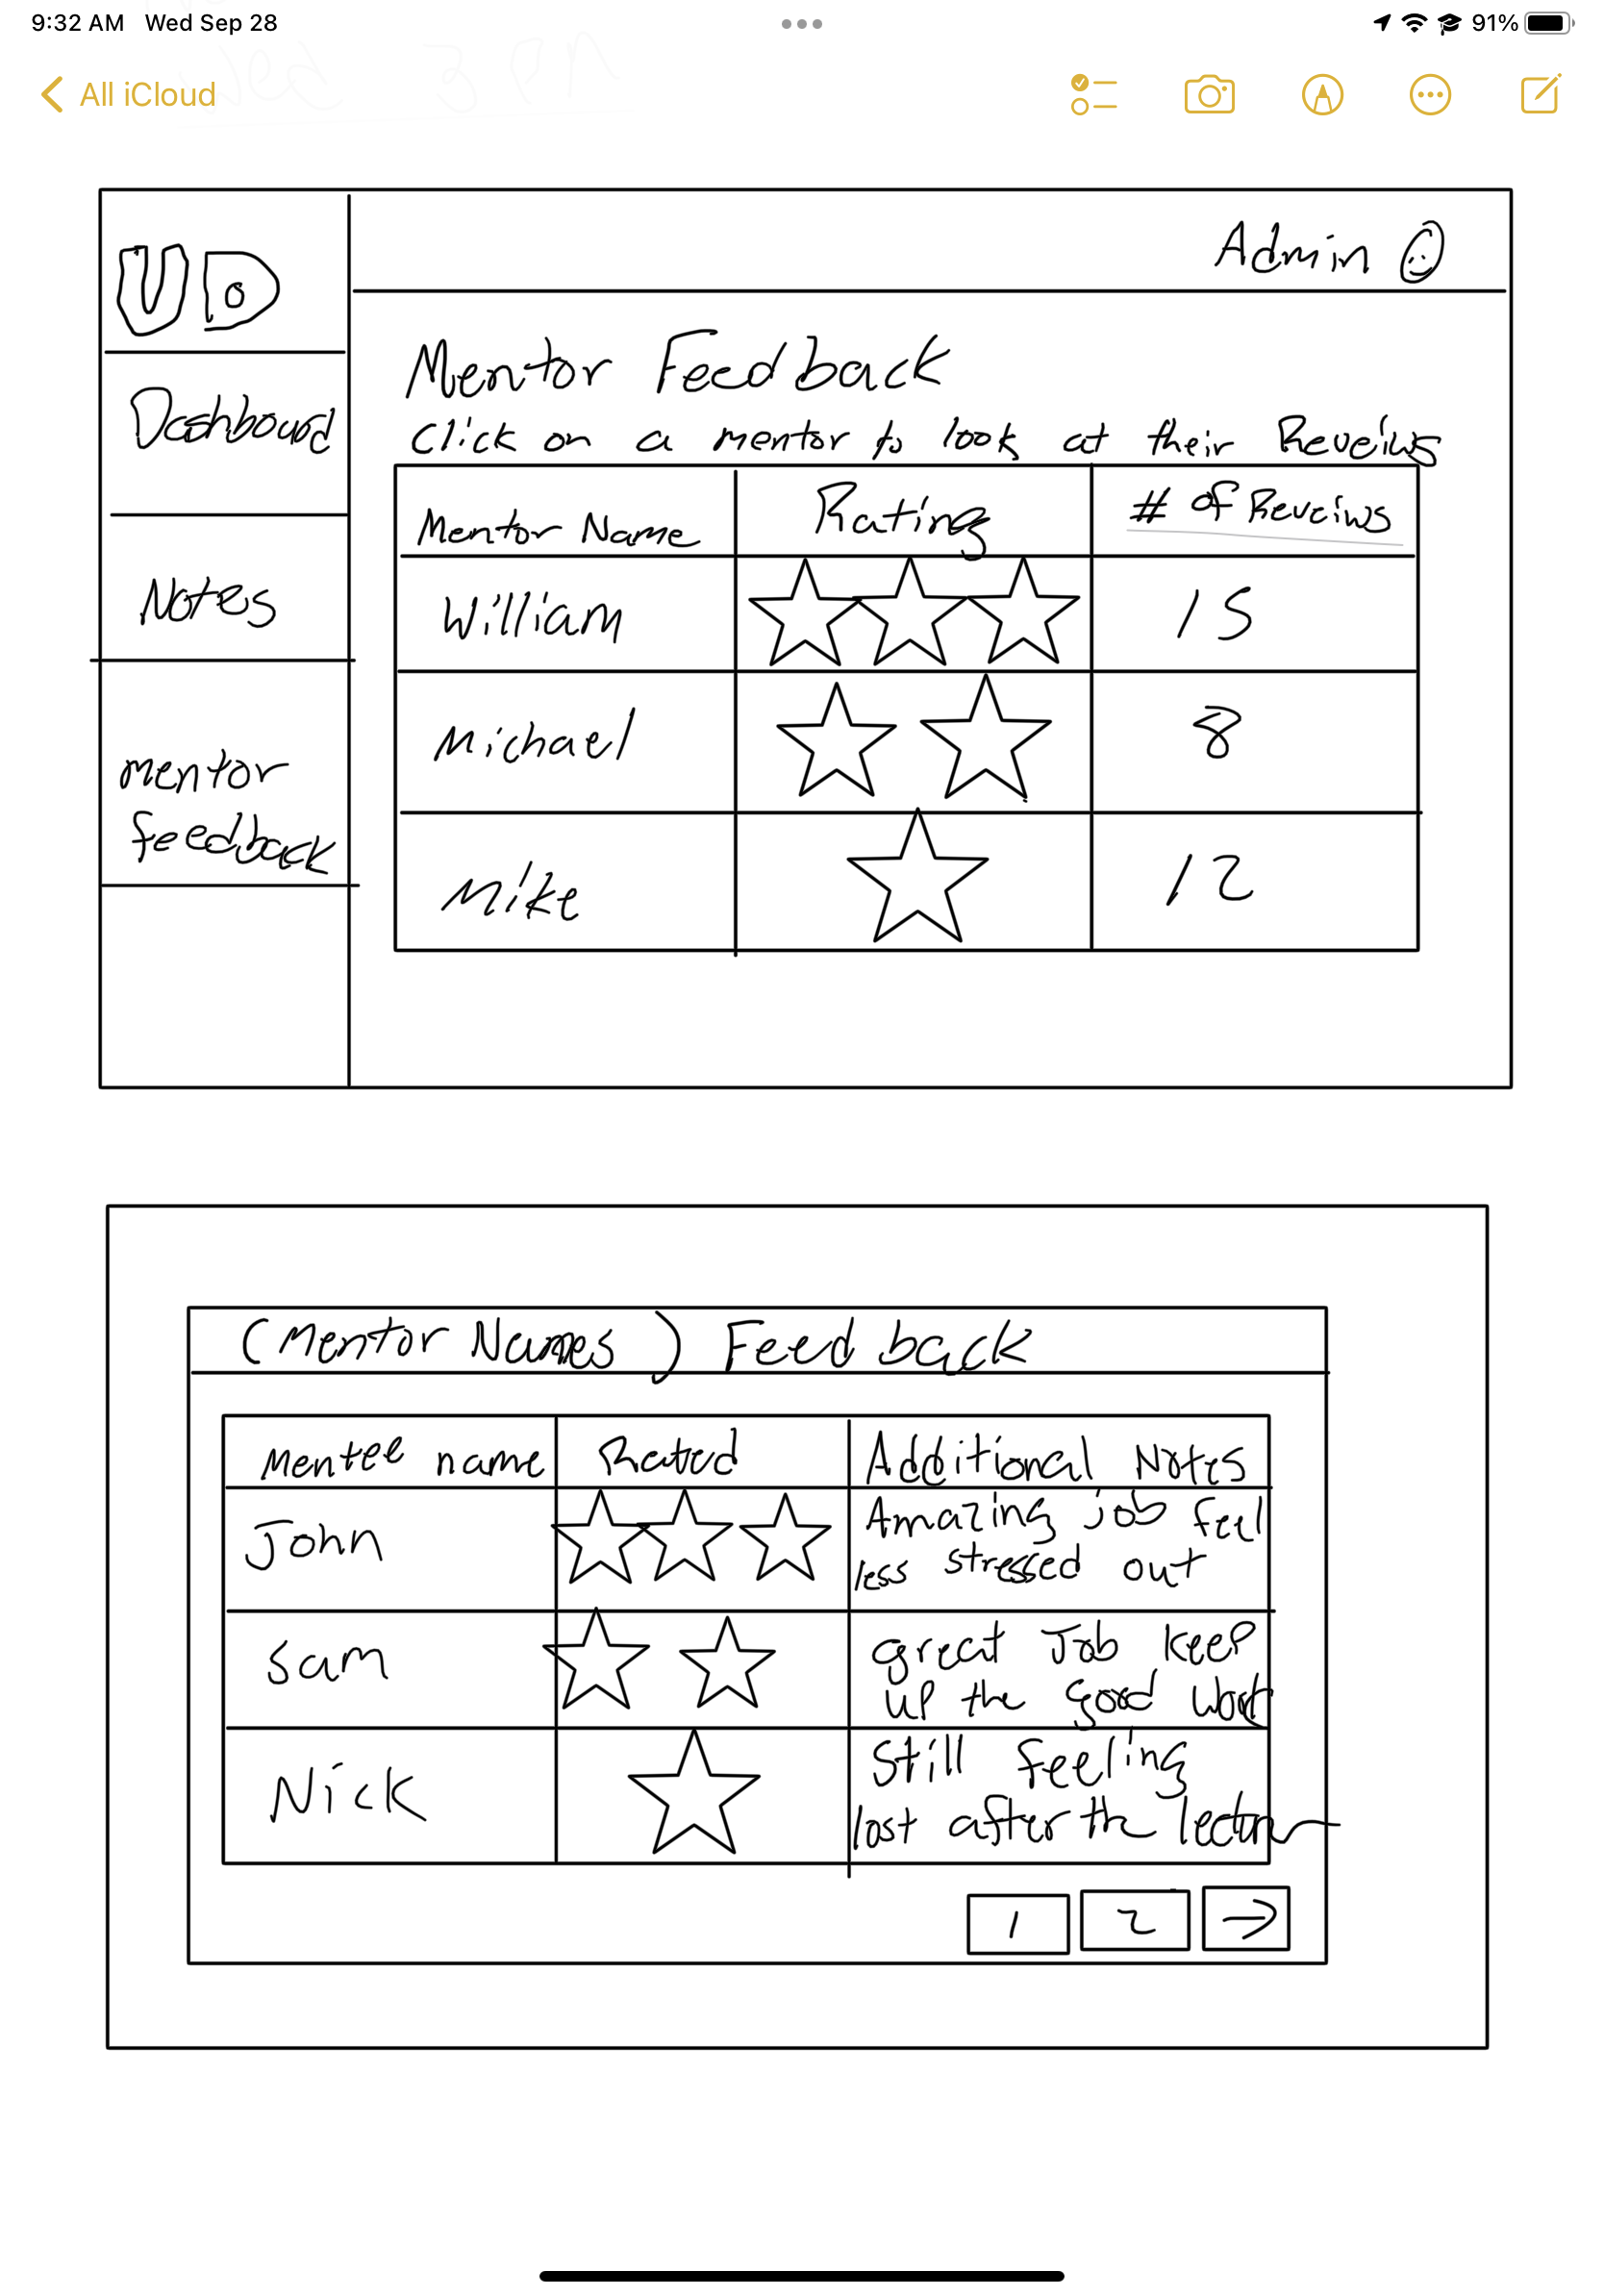 9:32 AM Wed Sep 28
91%
All iCloud
UD
Admin
Dashboard
Notes
mentor
feedback
Mentor Feedback
Click on a mentor to look at their Reveiws
Mentor Name Rating # of Reveiws
William 15
Michael 8
Mike 12
(Mentor Names) Feedback
Mentee name Rated Additional Notes
John Amazing job feel
less stressed out
Sam great Job keep
up the good work
Nick Still feeling
lost after the lecture
1 2 →